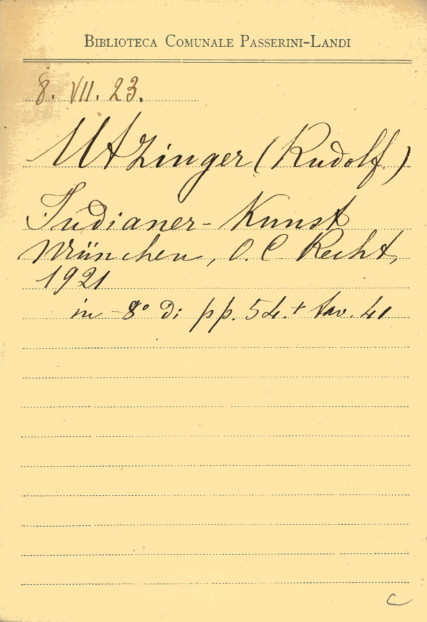 BIBLIOTECA COMUNALE PASSERINI-LANDI
8. VII. 23.
Utzinger (Rudolf)
Indianer-Kunst
München, O. C. Recht,
1921
in -8° di pp. 54 + tav. 41
C